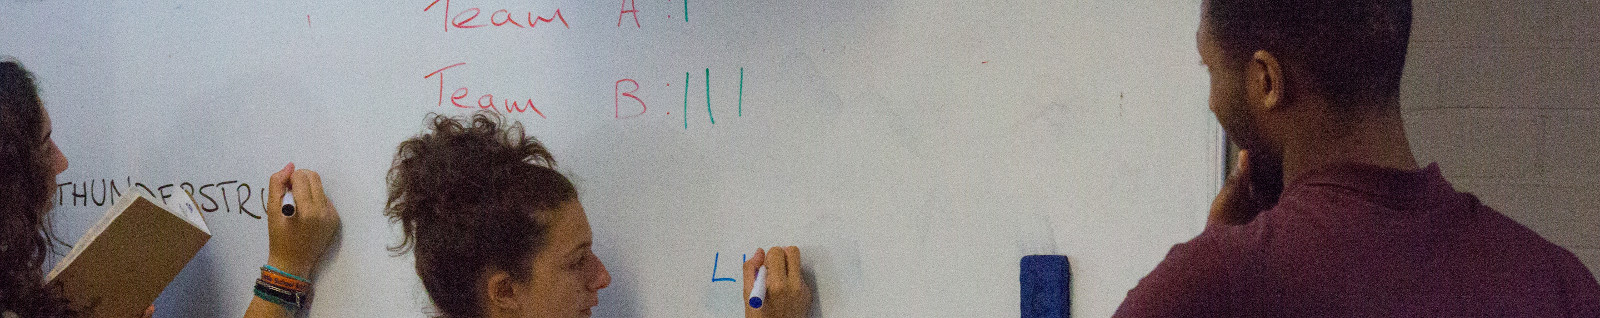 Team A:|
Team B:|||
THUNDERSTRU
L